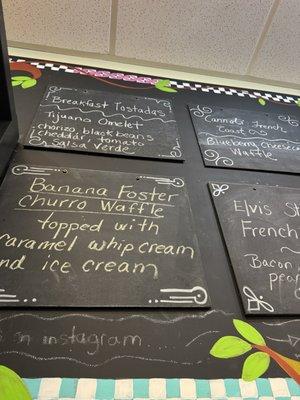 Breakfast Tostadas
Tijuana Omelet
chorizo, black beans
cheddar, tomato
& Salsa Verde
Cannoli French
Toast
Blueberry Cheesec
Waffle
Banana Foster
Churro Waffle
topped with
caramel whip cream
nd ice cream
Elvis St
French
Bacon
pea
on instagram